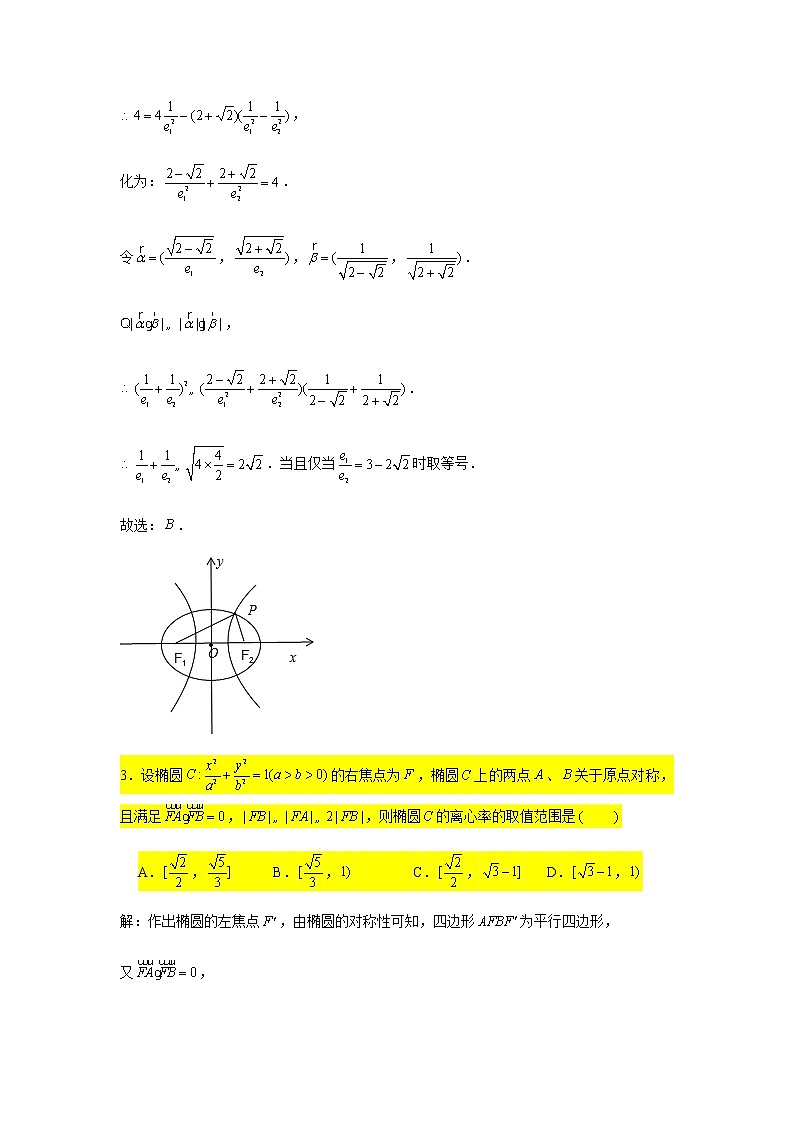 ∴ 4 = 4 1/e₁² − (2 + √2)(1/e₁² − 1/e₂²),
化为: (2 − √2)/e₁² + (2 + √2)/e₂² = 4.
令 α = (√(2 − √2)/e₁, √(2 + √2)/e₂), β = (1/√(2 − √2), 1/√(2 + √2)).
Q| αgβ |„ | α |g| β |,
∴ (1/e₁ + 1/e₂)²„ ((2 − √2)/e₁² + (2 + √2)/e₂²)(1/(2 − √2) + 1/(2 + √2)).
∴ 1/e₁ + 1/e₂„ √(4 × 4/2) = 2√2. 当且仅当 e₁/e₂ = 3 − 2√2 时取等号.
故选: B.
y
P
F₁ O F₂ x
3.设椭圆 C: x²/a² + y²/b² = 1(a > b > 0) 的右焦点为 F, 椭圆 C 上的两点 A、B 关于原点对称,
且满足 FAgFB = 0, | FB |„ | FA |„ 2 | FB |, 则椭圆 C 的离心率的取值范围是 ( )
A.[√2/2, √5/3] B.[√5/3, 1) C.[√2/2, √3 − 1] D.[√3 − 1, 1)
解: 作出椭圆的左焦点 F′, 由椭圆的对称性可知, 四边形 AFBF′ 为平行四边形,
又 FAgFB = 0,